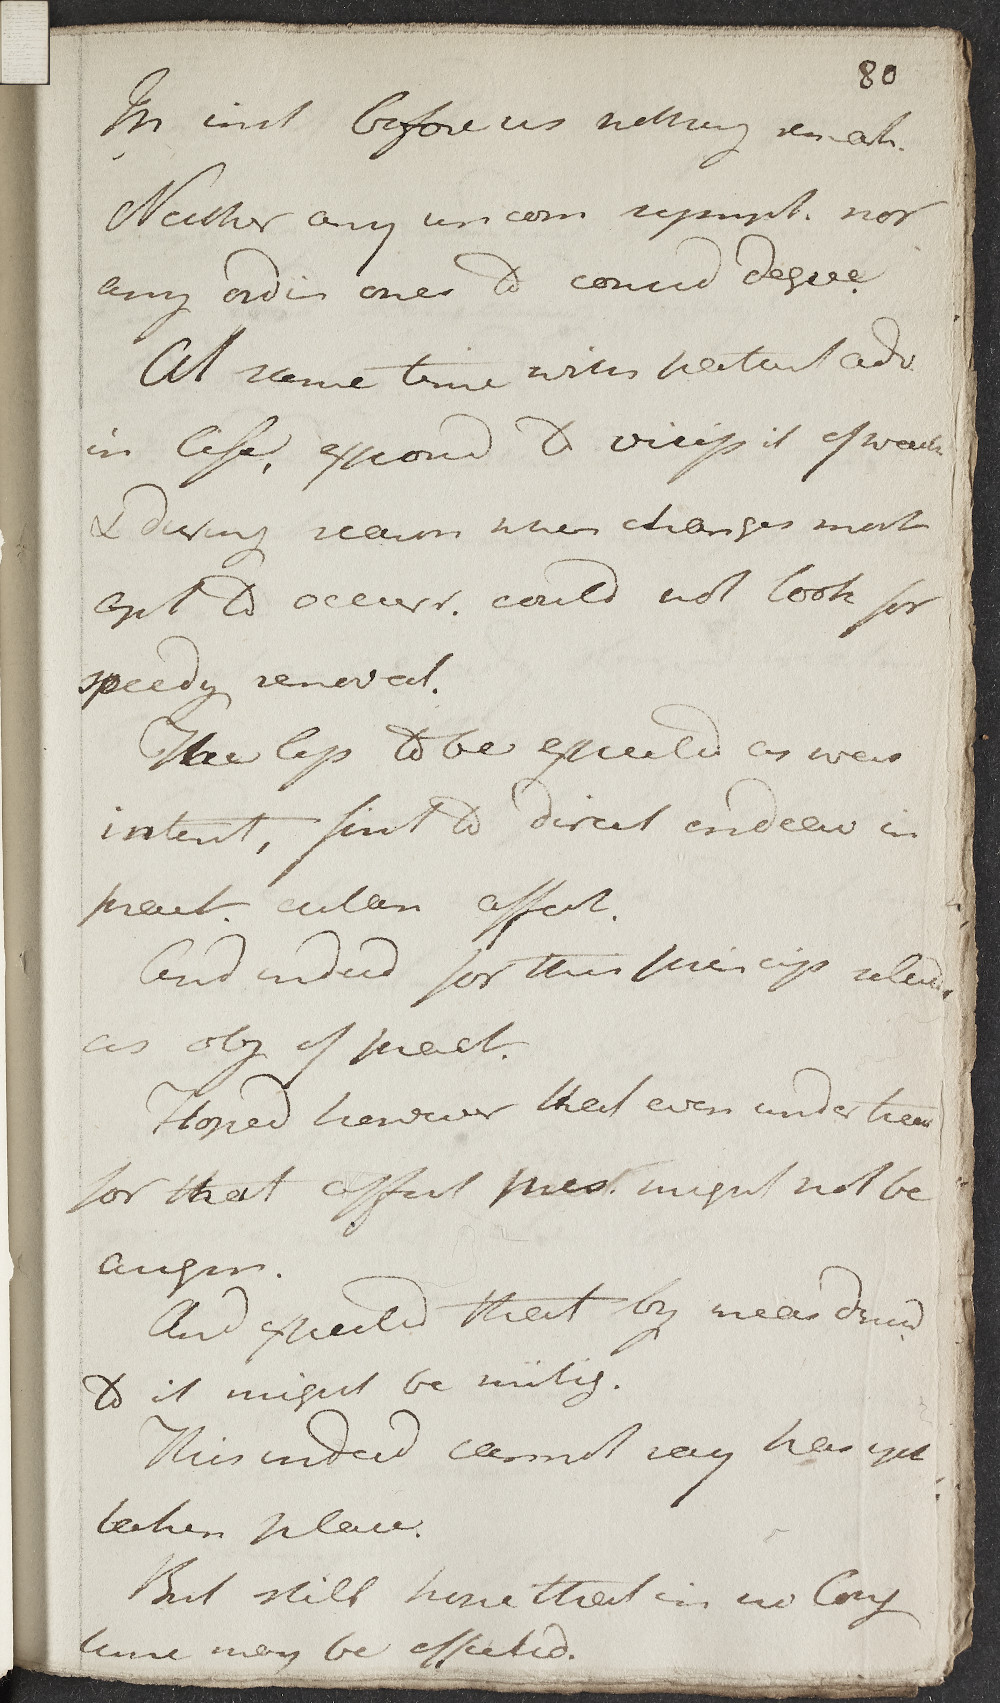 80
In inst before us nothing remark.
Neither any uncom sympt. nor
any ordin ones to consid degree
At same time with patient adv
in life, exposed to vicissit of weath
& during season when changes most
apt to occurr. could not look for
speedy removal.
This less to be expected as was
intent, first to direct endeav in
pract. cutan affect.
And indeed for this princip
as obj of pract.
Hoped however that even under treat
for that affect pres. might not be
augm.
And expected that by meas
to it might be mitig.
This indeed cannot say has yet
taken place.
But still hope that in no long
time may be effected.